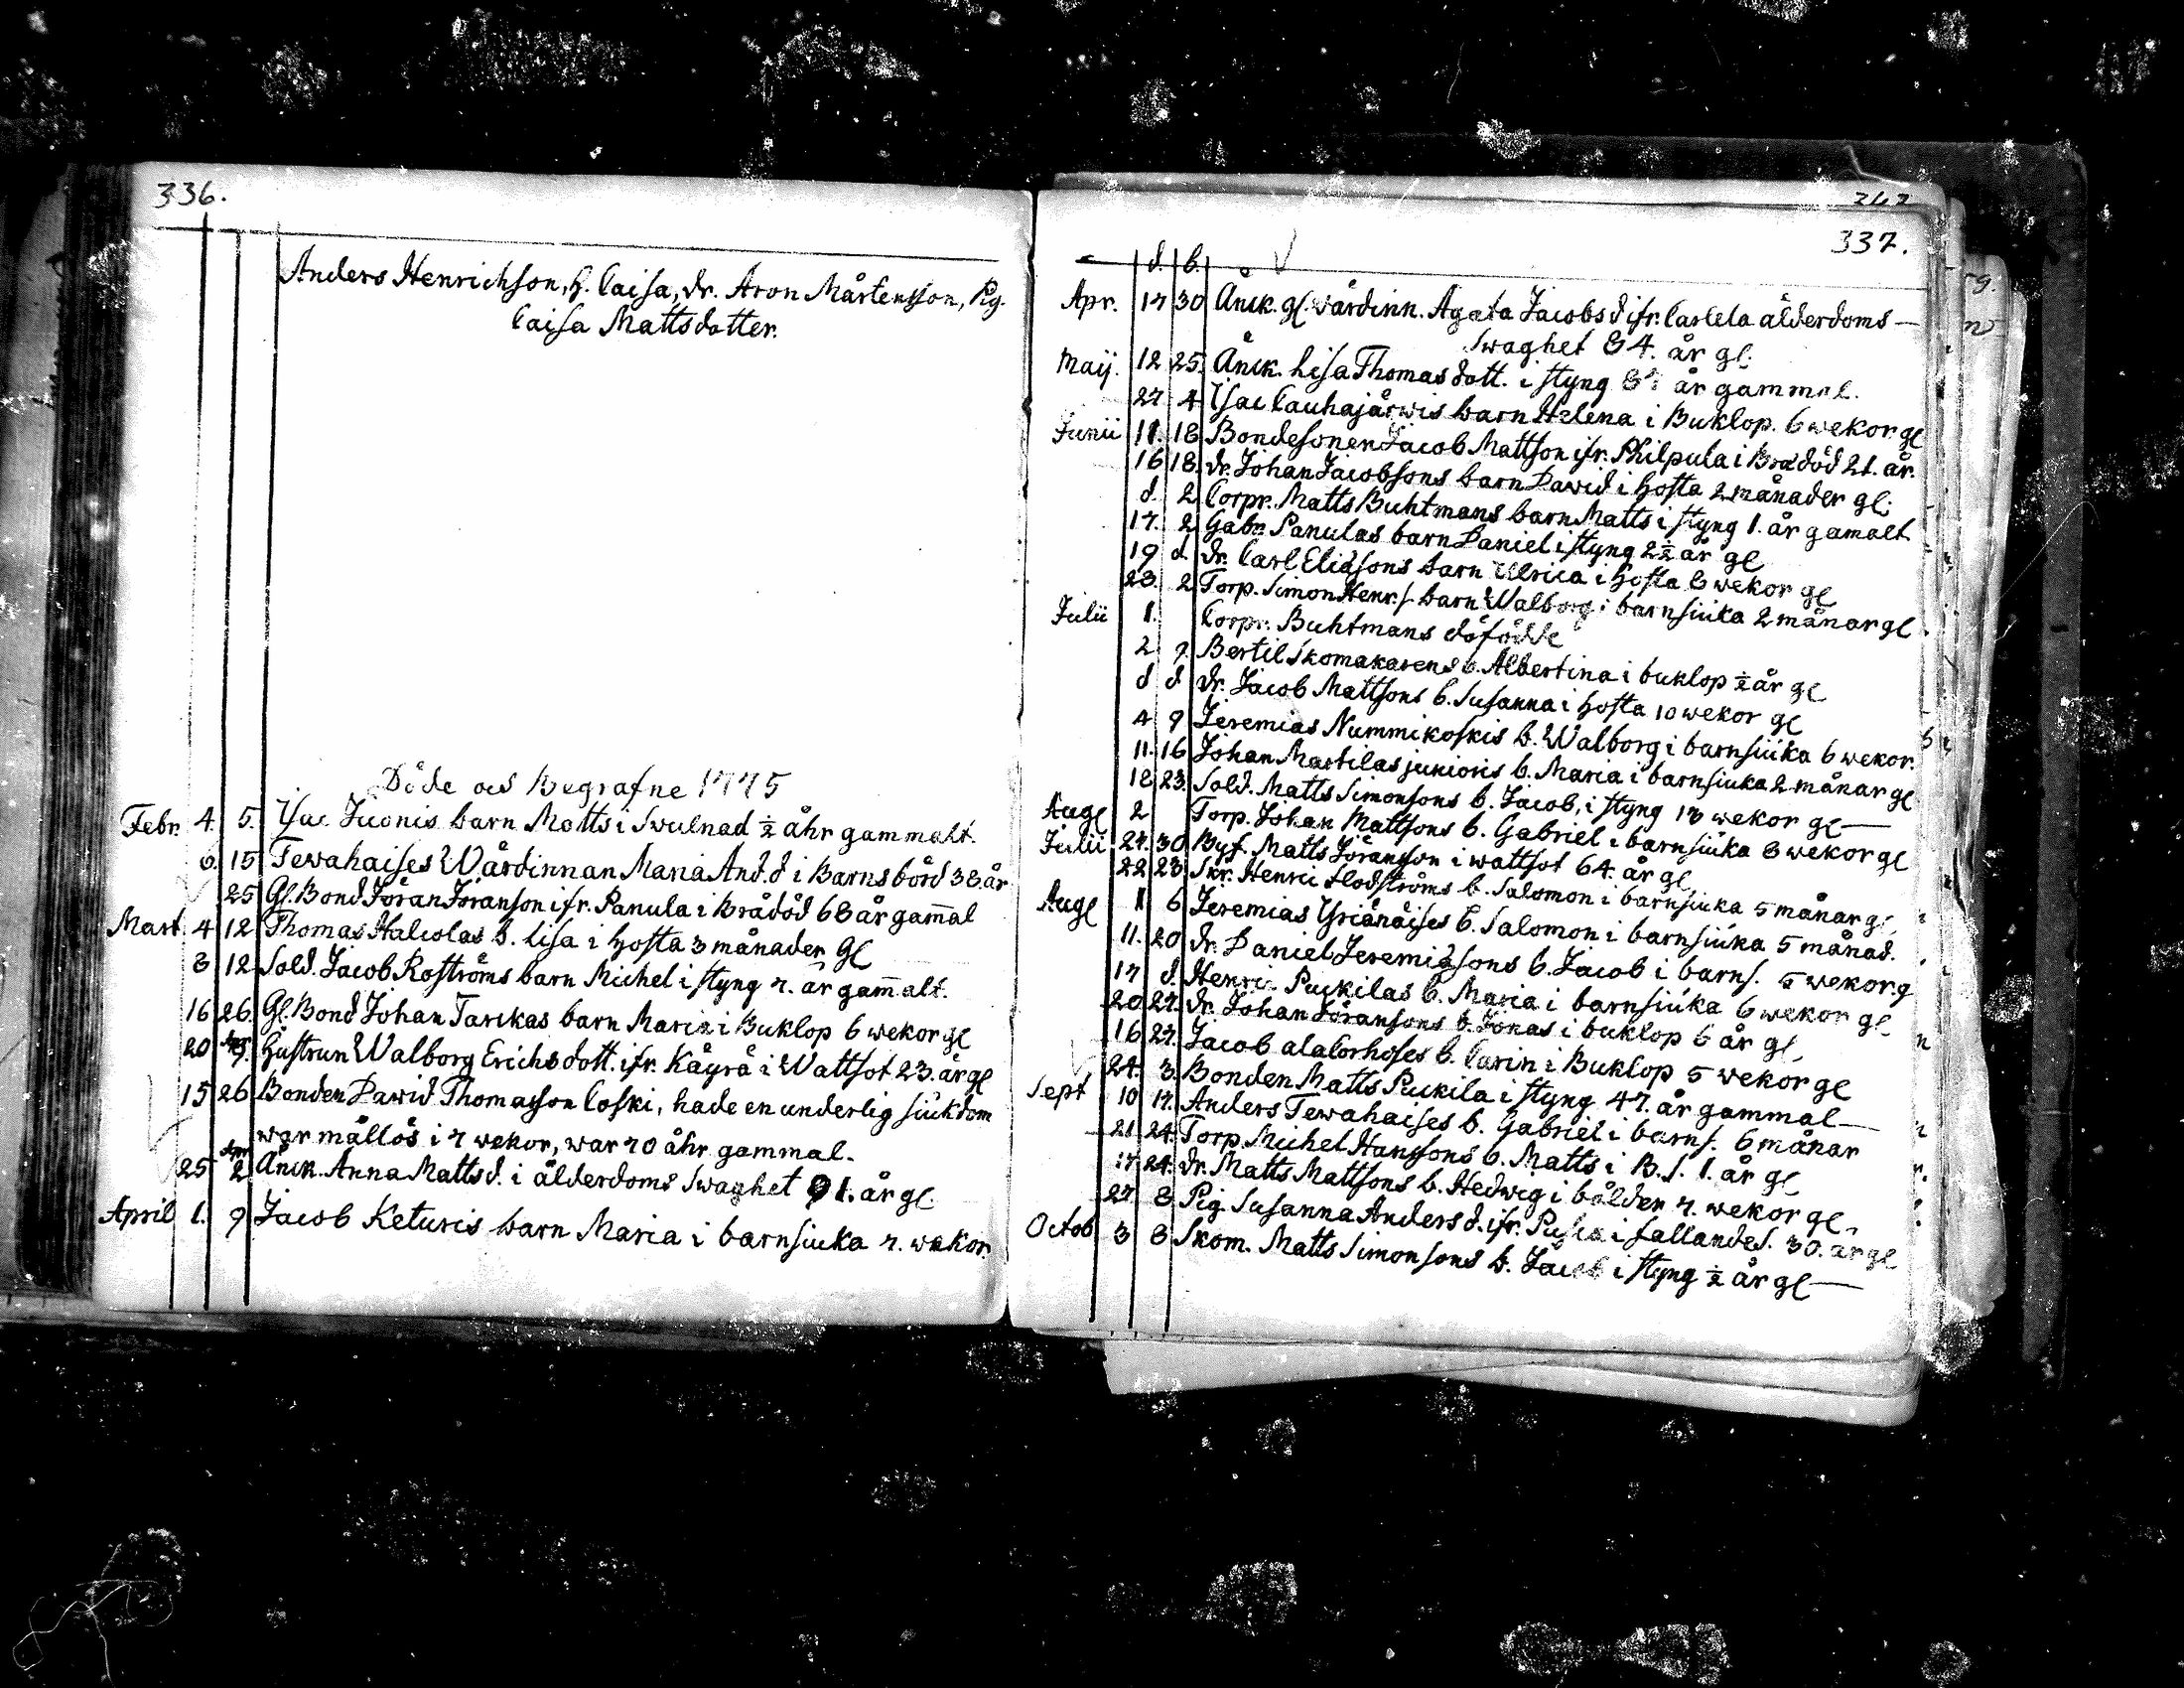 336.
Anders Henrichson, H. Caisa, dr. Aron Mårtensson, Pig.
Caisa Mattsdotter.
Döde och Begrafne 1775
Febr. 4. 5. Isac Juonis barn Matts i Swulnad ½ åhr gammalt.
6. 15 Tewahaises Wärdinnan Maria And.d i Barnsbörd 38. år
25 Gl. Bond Jöran Jöranson ifr. Panula i Brådöd 68 år gam̄al
Mart. 4 12 Thomas Halcolas b. Lisa i Hosta 3 månader gl
8 12 Sold. Jacob Roströms barn Michel i styng 7. år gam̄alt.
16 26. Gl. Bond Johan Tarckas barn Maria i Buklop 6 wekor gl
20 Apr 9. Hustrun Walborg Erichsdott. ifr. Käyrä i Wattsot 23. år gl
15 26 Bonden Dawid Thomasson Coski, hade en underlig siukdom
war mållös i 7 wekor, war 70 åhr gammal.
25 Apr 2 Änck. Anna Mattsd. i ålderdoms Swaghet 91. år gl.
April 1. 9 Jacob Keturis barn Maria i barnsiuka 7. wekor.
337.
d. b.
Apr. 17 30 Änck. gl. wärdinn. Agata Jacobsd ifr. Carlela ålderdoms—
Swaghet 84. år gl.
Maij. 12 25. Änck. Lisa Thomasdott. i styng år gammal.
27 4 Isac Cauhajärwis barn Helena i Buklop. 6 wekor gl
Junii 11. 18 Bondesonen Jacob Mattson ifr. Philpula i Brådöd 21. år.
16 18. dr. Johan Jacobsons barn Dawid i Hosta 2 månader gl.
d. 2 Corpr. Matts Buhtmans barn Matts i styng 1. år gamalt
17. 2 Gabr. Panulas barn Daniel i styng 2½ år gl
19 d. dr. Carl Eliäsons barn Ulrica i Hosta 8 wekor gl
23. 2 Torp. Simon Henr.s barn Walborg i barnsiuka 2 månar gl
Julii 1. Corpr. Buhtmans döfödde
2 9. Bertil Skomakarens b. Albertina i buklop ½ år gl
d d dr. Jacob Mattsons b. Susanna i Hosta 10 wekor gl
4 9 Jeremias Nummikoskis b. Walborg i barnsiuka 6 wekor.
11. 16 Johan Martilas junioris b. Maria i barnsiuka 2 månar gl
18 23. Sold. Matts Simonsons b. Jacob, i styng 17 wekor gl—
Aug 2 Torp. Johan Mattsons b. Gabriel i barnsiuka 8 wekor gl
Julii 27. 30 Bys. Matts Jöransson i wattsot 64. år gl
22 23 Skr. Henric Flodströms b. Salomon i barnsiuka 5 månar gl
Aug 1 6 Jeremias Yriänäises b. Salomon i barnsiuka 5 månad.
11. 20 dr. Daniel Jeremiäsons b. Jacob i barns. 5 wekor g
17 d. Henric Puckilas b. Maria i barnsiuka 6 wekor gl
20 27. dr. Johan Jöransons b. Jonas i buklop 6 år gl
16 27. Jacob alaCorhoses b. Carin i Buklop 5 wekor gl
24. 3. Bonden Matts Puckila i styng 47. år gammal—
Sept 10 17. Anders Tewahaises b. Gabriel i barns. 6 månar
21 24. Torp. Michel Hanssons b. Matts i B.s. 1. år gl
17. 24. dr. Matts Mattsons b. Hedwig i bålden 7. wekor gl.
27. 8 Pig. Susanna Andersd. ifr. i fallandes. 30. år gl
Octob 3 8 Skom. Matts Simonsons b. Jacob i styng ½ år gl—